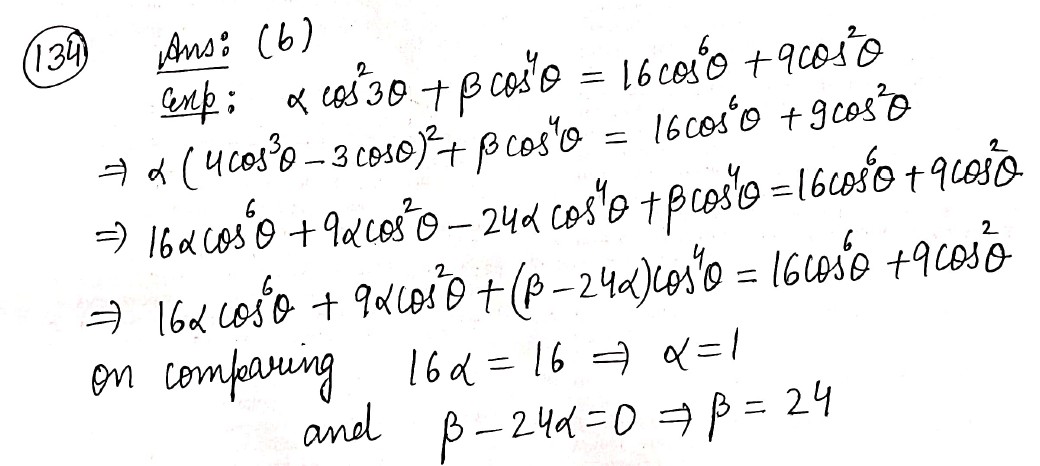 (134) Ans: (b)
Exp: α cos²3θ + β cos⁴θ = 16 cos⁶θ + 9 cos²θ
⇒ α (4 cos³θ – 3 cosθ)² + β cos⁴θ = 16 cos⁶θ + 9 cos²θ
⇒ 16α cos⁶θ + 9α cos²θ – 24α cos⁴θ + β cos⁴θ = 16 cos⁶θ + 9 cos²θ
⇒ 16α cos⁶θ + 9α cos²θ + (β – 24α) cos⁴θ = 16 cos⁶θ + 9 cos²θ
on comparing 16α = 16 ⇒ α = 1
and β – 24α = 0 ⇒ β = 24